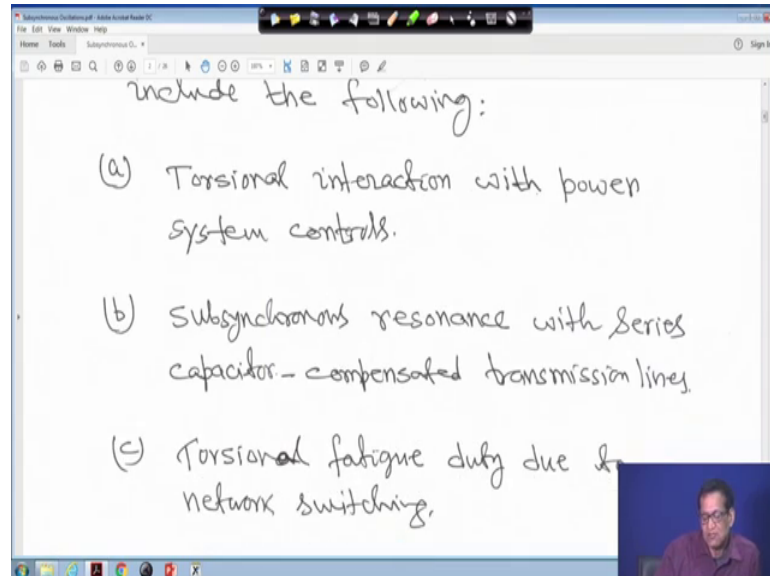 Subsynchronous Oscillations.pdf - Adobe Acrobat Reader DC
File Edit View Window Help
Home Tools Subsynchronous O... ×
Sign In
2 / 28
include the following:
(a) Torsional interaction with power
system controls.
(b) Subsynchronous resonance with Series
capacitor-compensated transmission lines.
(c) Torsional fatigue duty due to
network switching.